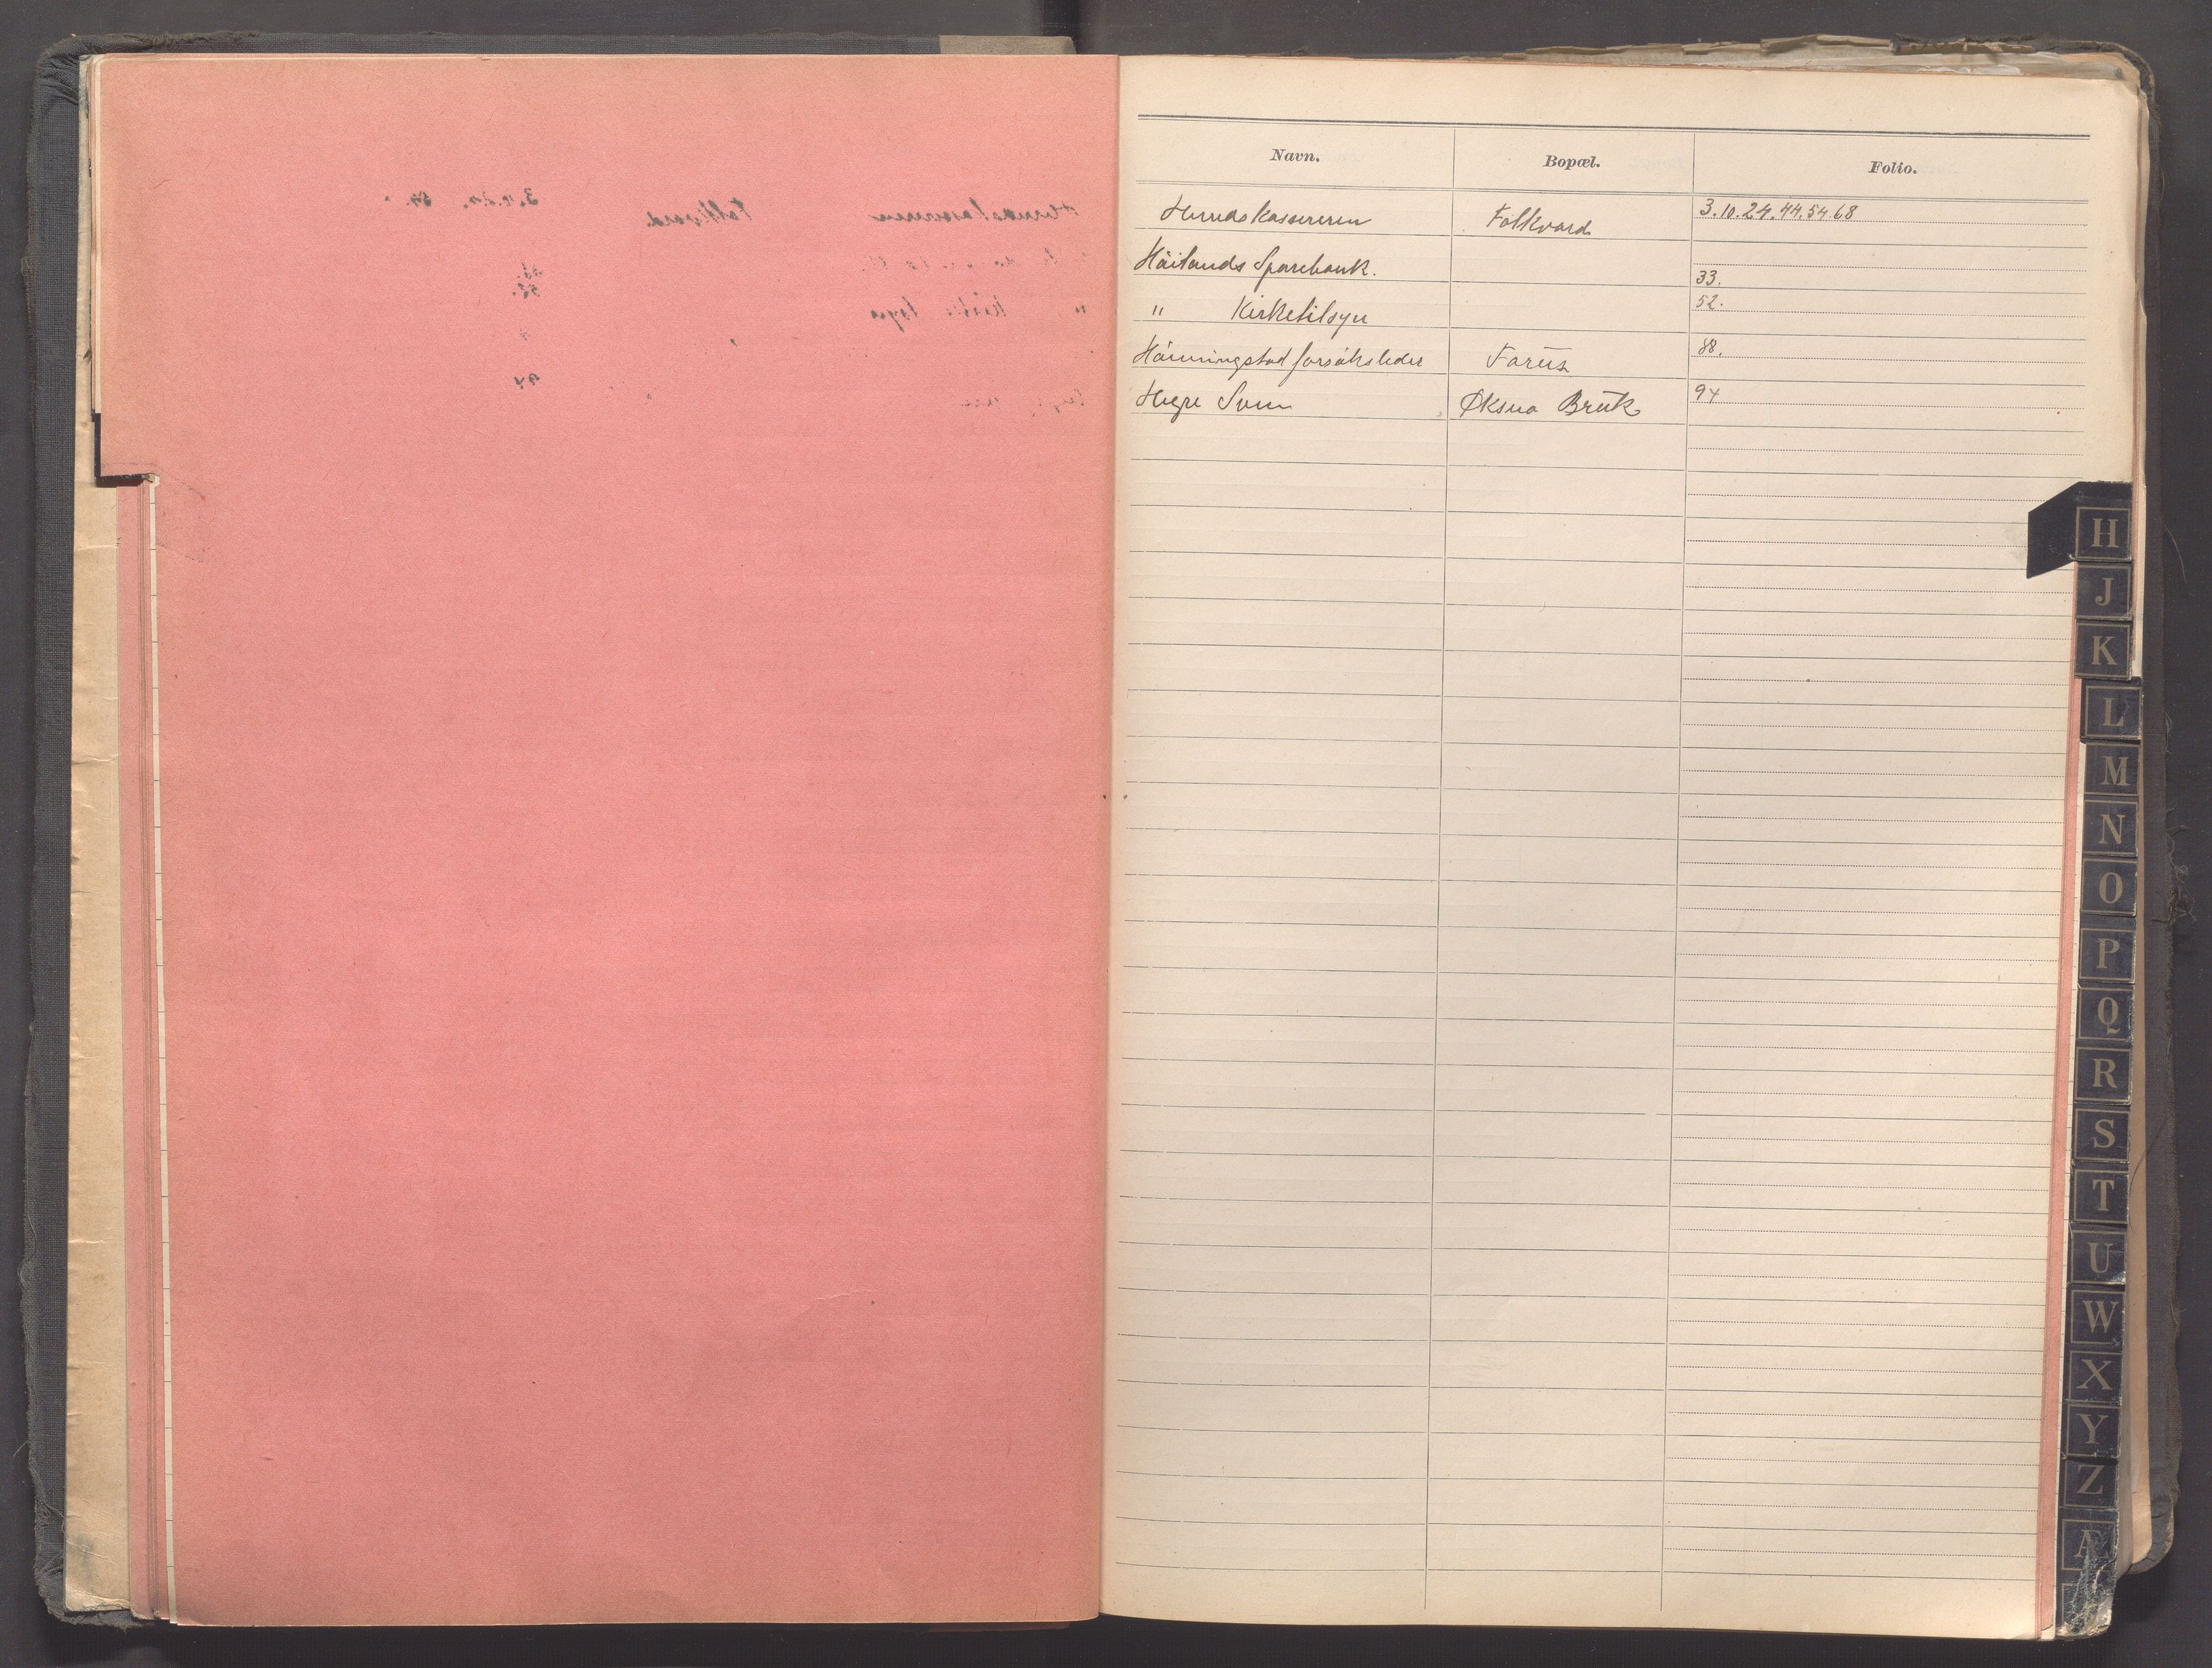 Navn. Bopæl. Folio.
Herredskassereren Folkvord 3.10.24.44.54.68
Håilands Sparebank. 33.
" Kirketilsyn 52.
Hönningstad forsöksleder Forus 88.
Hegre Sven Øksna Brük 94
H
J
K
L
M
N
O
P
Q
R
S
T
U
W
X
Y
Z
Æ